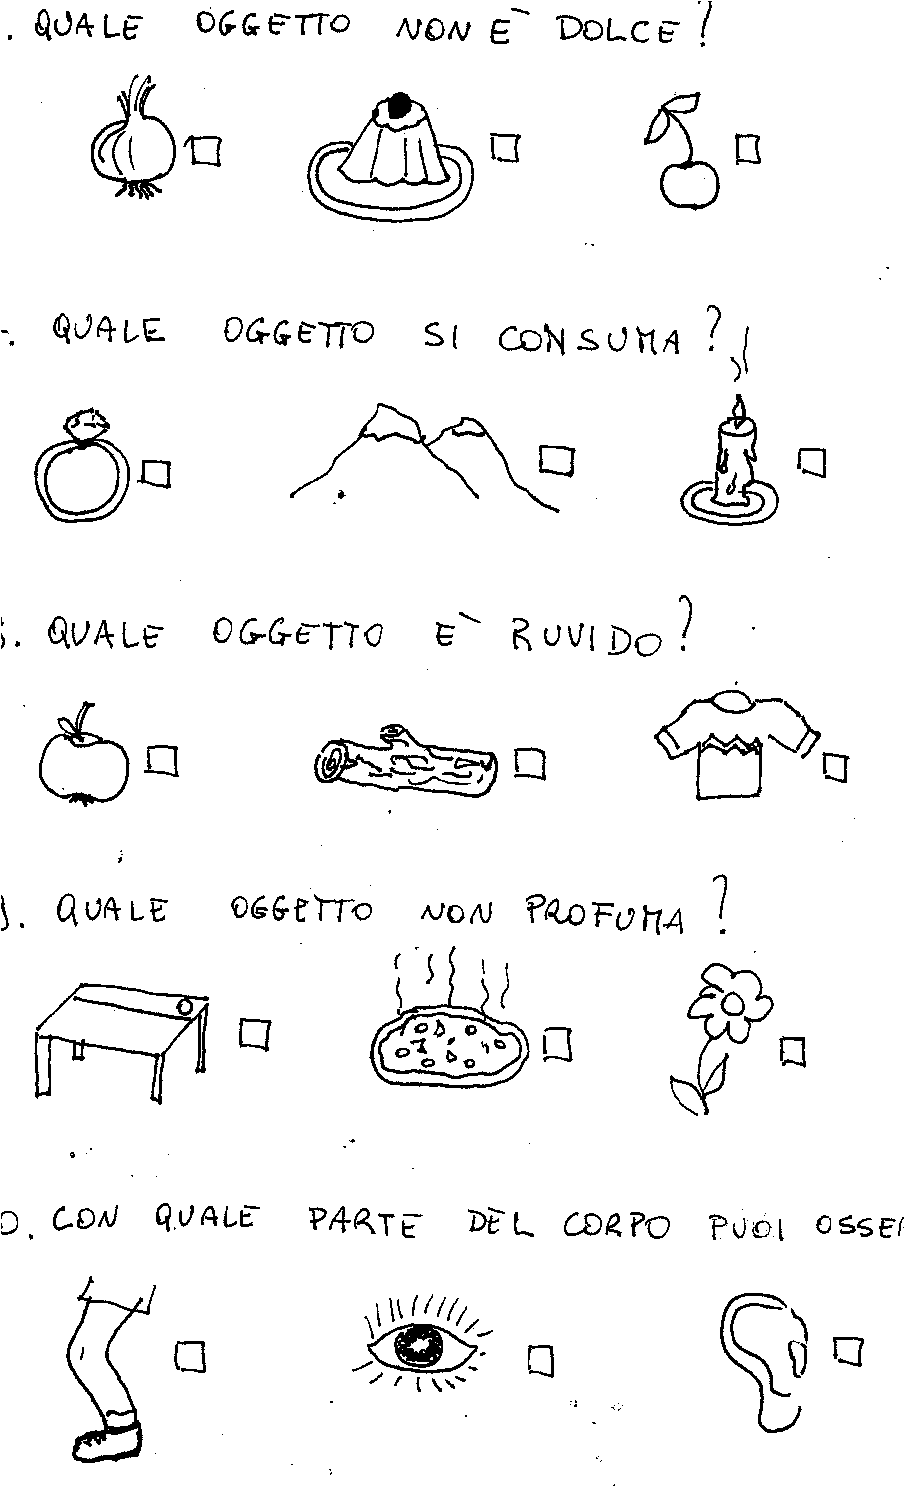 . QUALE OGGETTO NON È DOLCE?
. QUALE OGGETTO SI CONSUMA?
. QUALE OGGETTO È RUVIDO?
. QUALE OGGETTO NON PROFUMA?
. CON QUALE PARTE DEL CORPO PUOI OSSE